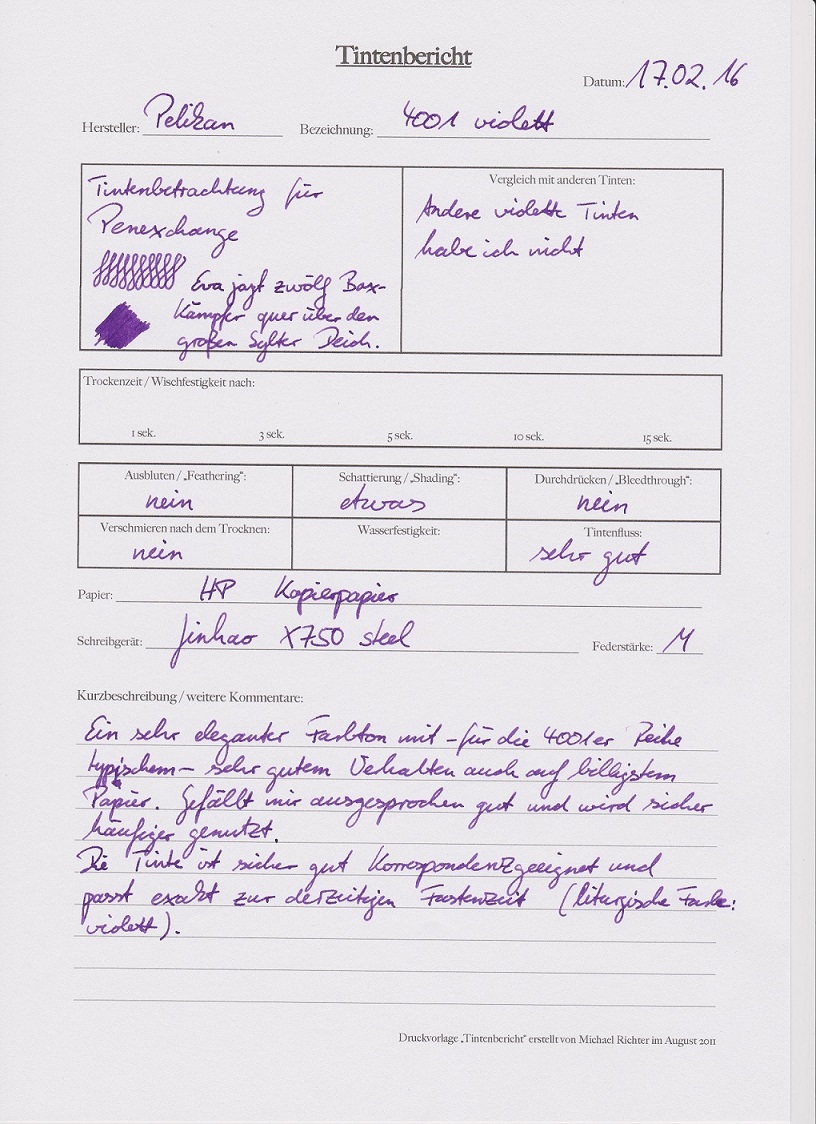 Tintenbericht
Datum: 17.02.16
Hersteller: Pelikan Bezeichnung: 4001 violett
Tintenbetrachtung für
Penexchange
Eva jagt zwölf Box-
kämpfer quer über den
großen Sylter Deich.
Vergleich mit anderen Tinten:
Andere violette Tinten
habe ich nicht
Trockenzeit / Wischfestigkeit nach:
1 sek. 3 sek. 5 sek. 10 sek. 15 sek.
Ausbluten / „Feathering": Schattierung / „Shading": Durchdrücken / „Bleedthrough":
nein etwas nein
Verschmieren nach dem Trocknen: Wasserfestigkeit: Tintenfluss:
nein sehr gut
Papier: HP Kopierpapier
Schreibgerät: Jinhao X750 steel Federstärke: M
Kurzbeschreibung / weitere Kommentare:
Ein sehr eleganter Farbton mit – für die 4001er Reihe
typischem – sehr gutem Verhalten auch auf billigstem
Papier. Gefällt mir ausgesprochen gut und wird sicher
häufiger genutzt.
Die Tinte ist sicher gut Korrespondenzgeeignet und
passt exakt zur derzeitigen Fastenzeit (liturgische Farbe:
violett).
Druckvorlage „Tintenbericht" erstellt von Michael Richter im August 2011